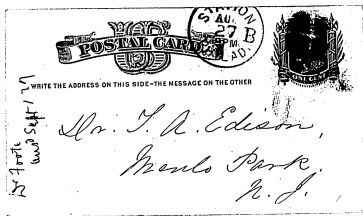 STATION
AU.
27
B
PM.
AD.
POSTAL CARD
US
ONE CENT
WRITE THE ADDRESS ON THIS SIDE—THE MESSAGE ON THE OTHER
Dr. T. A. Edison,
Menlo Park.
N. J.
Dr Foote
ansd Sept 1 27